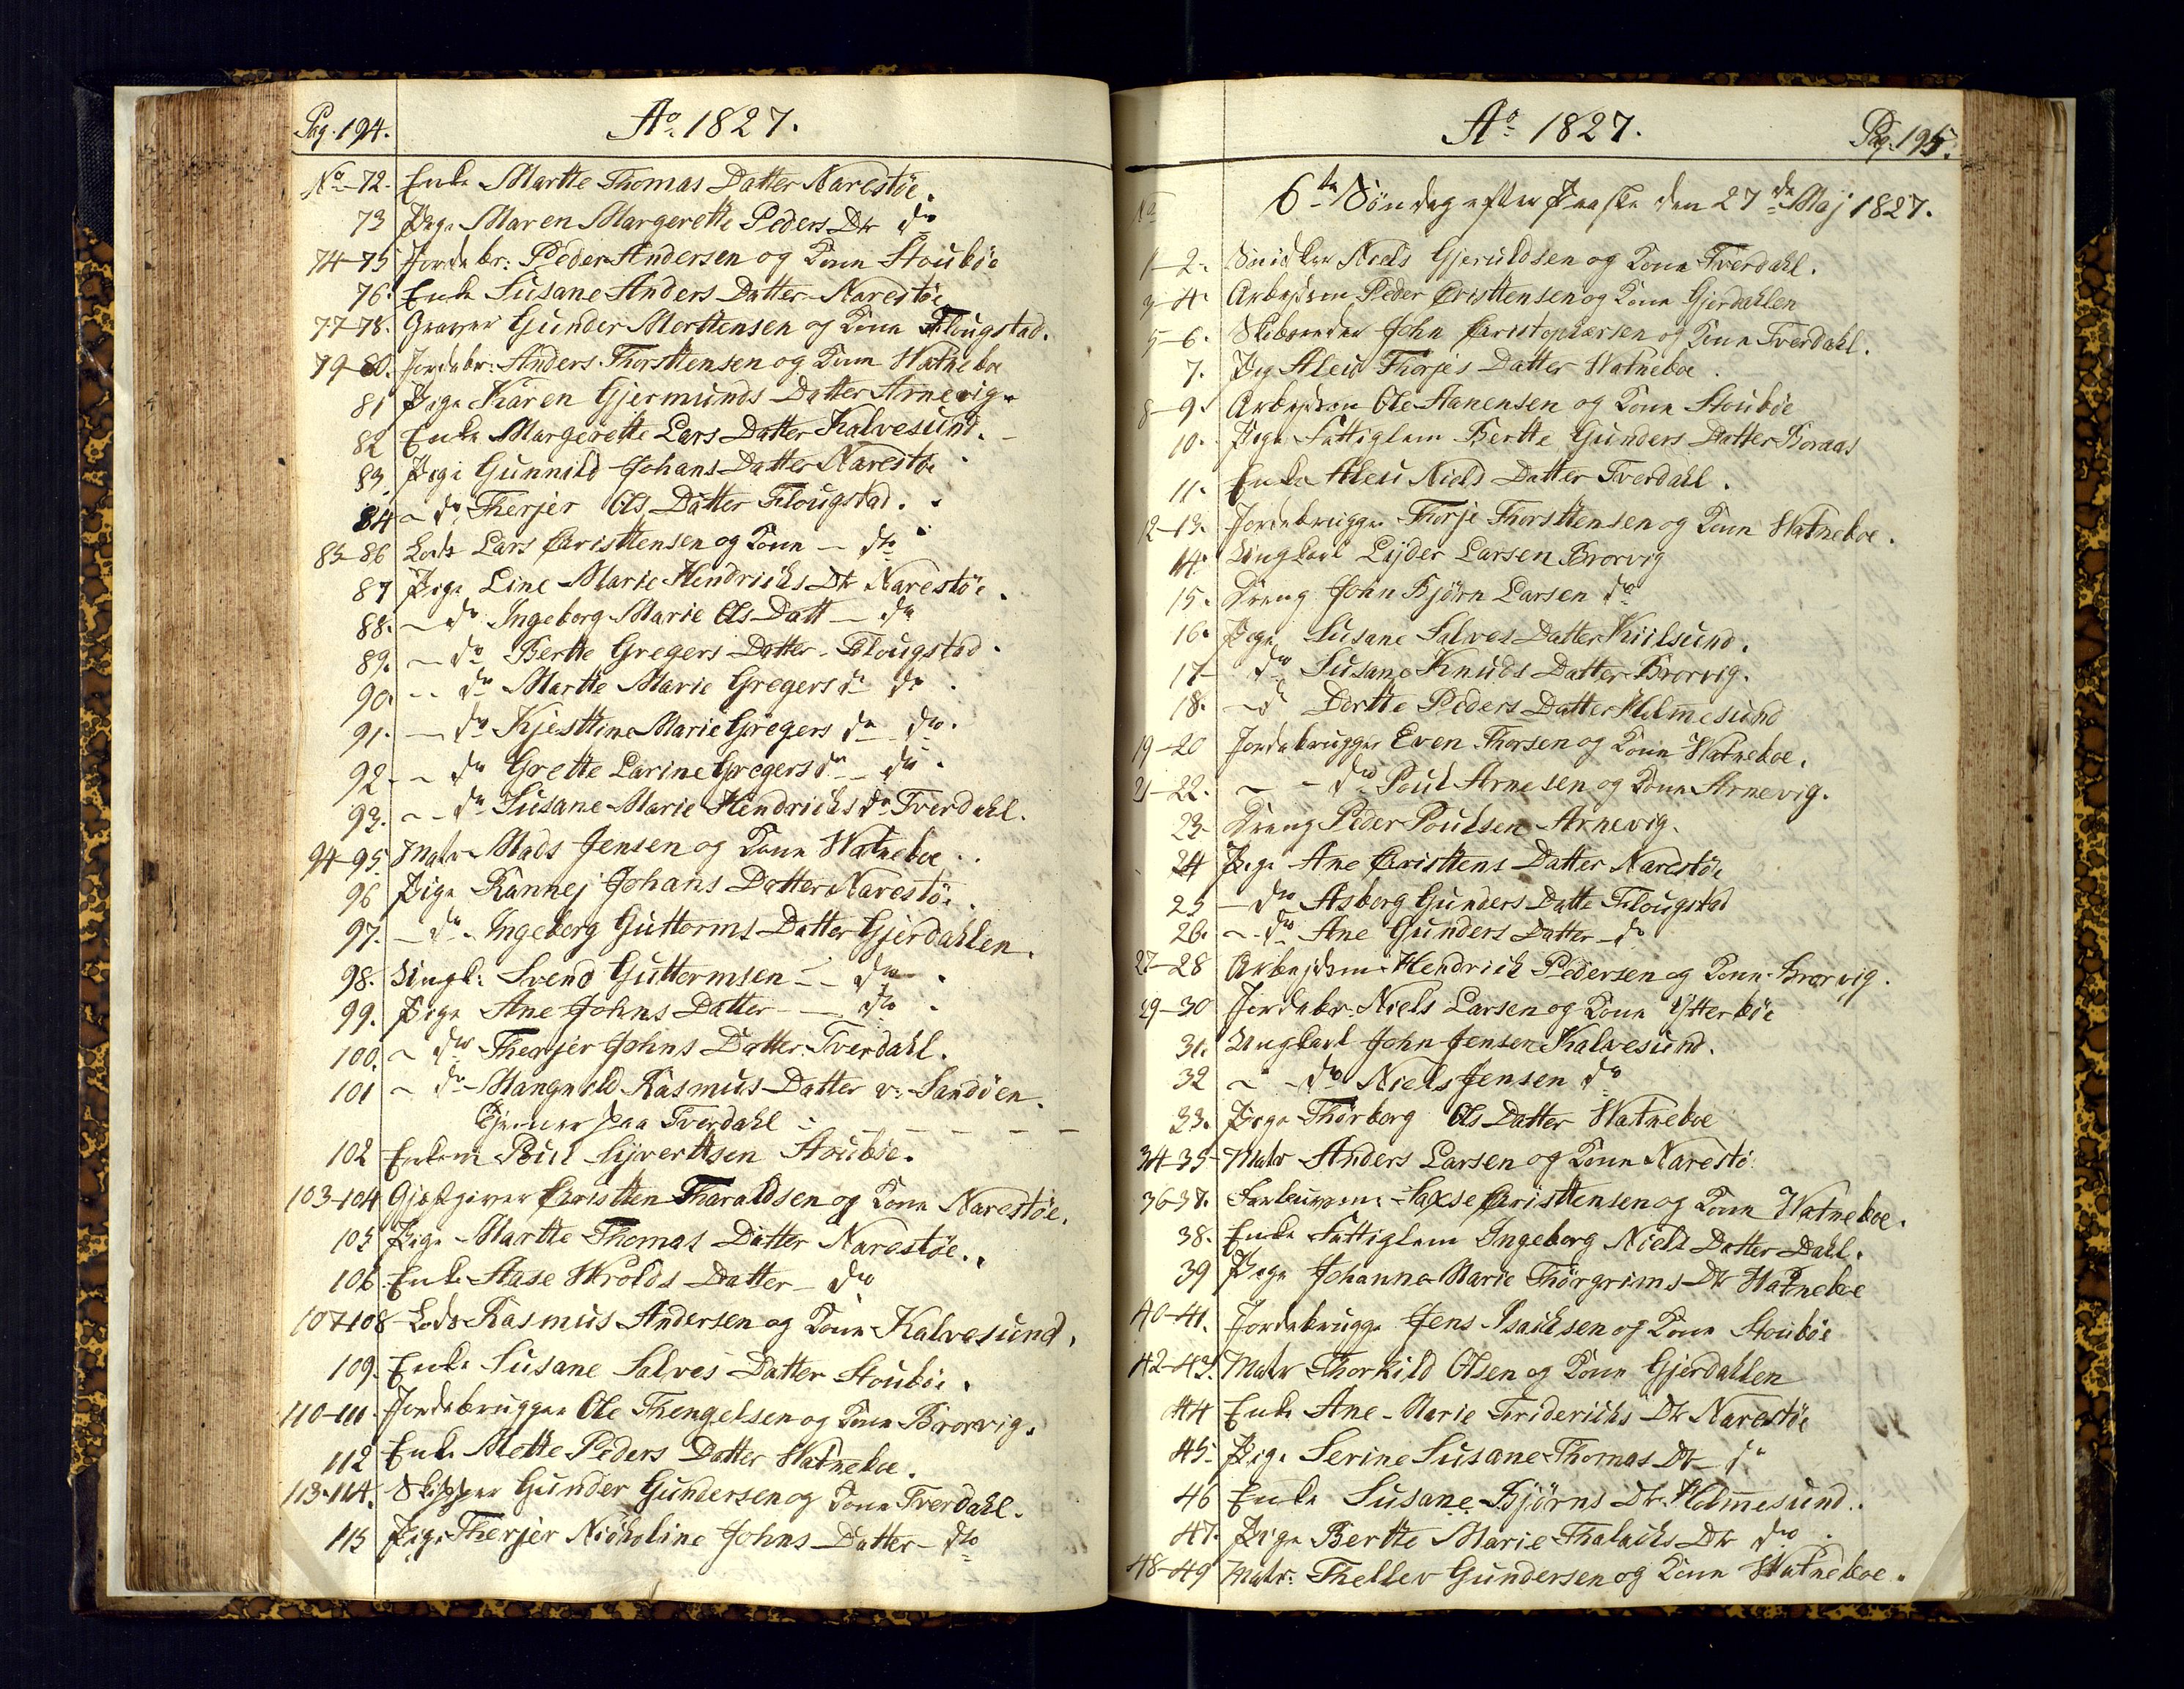 Pag. 194.
Ao 1827.
No 72. Enke Martte Thomas Datter Narestöe.
73 Pige Maren Margerette Peders Dtr do
74-75 Jordebr: Peder Andersen og Kone Stouböe
76. Enke Susane Anders Datter Narestöe
77-78. Gunder Morttensen og Kone Flougstad.
79-80. Jordebr: Anders Thorsttensen og Kone Watneboe
81 Pige Karen Gjermunds Datter Arnevig.
82 Enke Margerette Lars Datter Kalvesund.
83. Pige Gunnild Johans Datter Narestöe
84 - do Therjer Ols Datter Flougstad.
85-86 Lods Lars Christtensen og Kone - do
87 Pige Line Marie Hendrichs Dtr Narestöe.
88. - do Ingeborg Marie Ols Datt - do
89. - do Bertte Gregers Datter Flougstad.
90. - do Martte Marie Gregers do do.
91. - do Kjesttine Marie Gregers do do.
92. - do Grette Larine Gregers do - do.
93. - do Susane Marie Hendrichs do Tverdahl.
94-95. Matr Mads Jensen og Kone Watneboe.
96 Pige Rannej Johans Datter Narestöe.
97. - do Ingeborg Guttorms Datter Gjerdahlen.
98. Ungk: Svend Guttormsen - - do
99. Pige Ane Johns Datter - - do
100. - do Therjer Johns Datter Tverdahl.
101 - do Mangnild Rasmus Datter v: Sandöen.
Tjener paa Tverdahl - - - - -
102 Enkem Poul Syverttsen Stouböe.
103-104 Gjestgiver Christten Tharaldsen og Kone Narestöe.
105 Pige Martte Thomas Datter Narestöe.
106. Enke Aase Wrolds Datter - do
107-108 Lods Rasmus Andersen og Kone Kalvesund.
109. Enke Susane Salves Datter Stouböe.
110-111. Jordebrugger Ole Thengelsen og Kone Brorvig.
112 Enke Mette Peders Datter Watneboe.
113-114. Skipper Gunder Gundersen og Kone Tverdahl.
115 Pige Therjer Nicholine Johns Datter - do
Ao 1827.
Pag. 195.
No
6te Söndag efter Paaske den 27de Maj 1827.
1-2. Snidker Niels Gjeruldsen og Kone Tverdahl.
3-4. Arbejdsm Peder Christtensen og Kone Gjerdahlen
5-6. John Christophersen og Kone Tverdahl.
7. Pig Aleu Thorjes Datter Watneboe.
8-9. Arbejdsm Ole Aanensen og Kone Stoubøe
10. Pige Fattiglem Bertte Gunders Datter Boraas
11. Enke Aleu Niels Datter Tverdahl.
12-13. Jordebrugger Thorje Thorsttensen og Kone Watneboe.
14. Ungkarl Lyder Larsen Brorvig
15. Dreng John Björn Larsen do
16. Pige Susane Salves Datter Kiilsund.
17- do Susane Knuds Datter Brorvig.
18. - d Dortte Peders Datter Holmesund
19-20 Jordebrugger Even Thorsen og Kone Watneboe.
21-22. - - do Poul Arnesen og Kone Arnevig.
23- Dreng Peder Poulsen Arnevig.
24 Pige Ane Christtens Datter Narestöe
25 - do Asborg Gunders Datte Flougstad
26. - do Ane Gunders Datter - do
27-28 Arbejdsm Hendrich Pedersen og Kone Brorvig.
29-30 Jordebr. Niels Larsen og Kone Ytterböe
31. Ungkarl John Jensen Kalvesund.
32 - - do Niels Jensen do
33. Pige Thorborg Ols Datter Watneboe
34-35- Matr Anders Larsen og Kone Narestö
36-37. Saxse Christtensen og Kone Watneboe.
38. Enke Fattiglem Ingeborg Niels Datter Dahl.
39 Pige Johanne Marie Thorgrims Dtr Watneboe
40-41. Jordebrugge Jens Isachsen og Kone Stouböe
42-43. Matr Thorkild Olsen og Kone Gjerdahlen
44 Enke Ane Marie Friderichs Dtr Narestöe
45- Pige Serine Susane Thomas Dtr do
46 Enke Susane Bjørns Dtr Holmesund.
47. Pige Bertte Marie Thalachs Dtr do
48-49 Matr: Thellev Gundersen og Kone Watneboe.